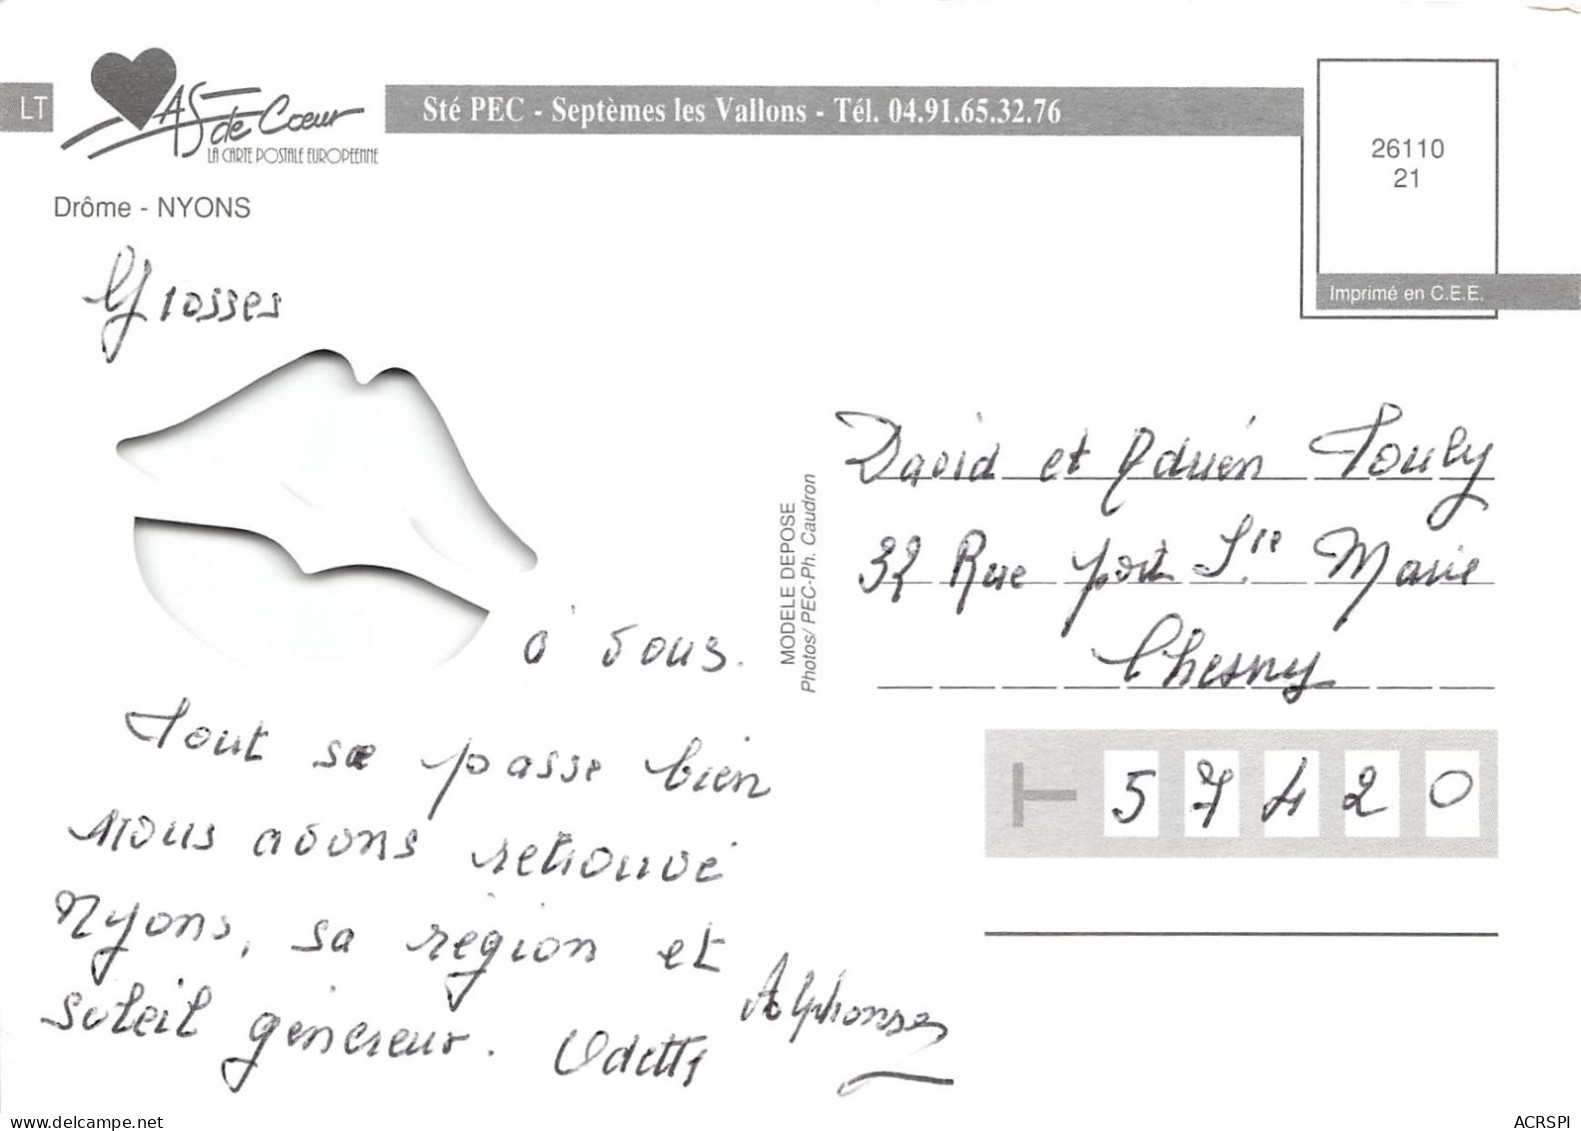 LT
AS de Cœur
LA CARTE POSTALE EUROPEENNE
Sté PEC - Septèmes les Vallons - Tél. 04.91.65.32.76
26110
21
Imprimé en C.E.E.
Drôme - NYONS
Grosses
à vous.
Tout se passe bien
nous avons retrouvé
Nyons, sa région et
soleil généreux. Odette
Alphonse
MODELE DEPOSE
Photos/ PEC-Ph. Caudron
David et Adrien Pouly
32 Rue port Ste Marie
Chesny
57420
www.delcampe.net
ACRSPI